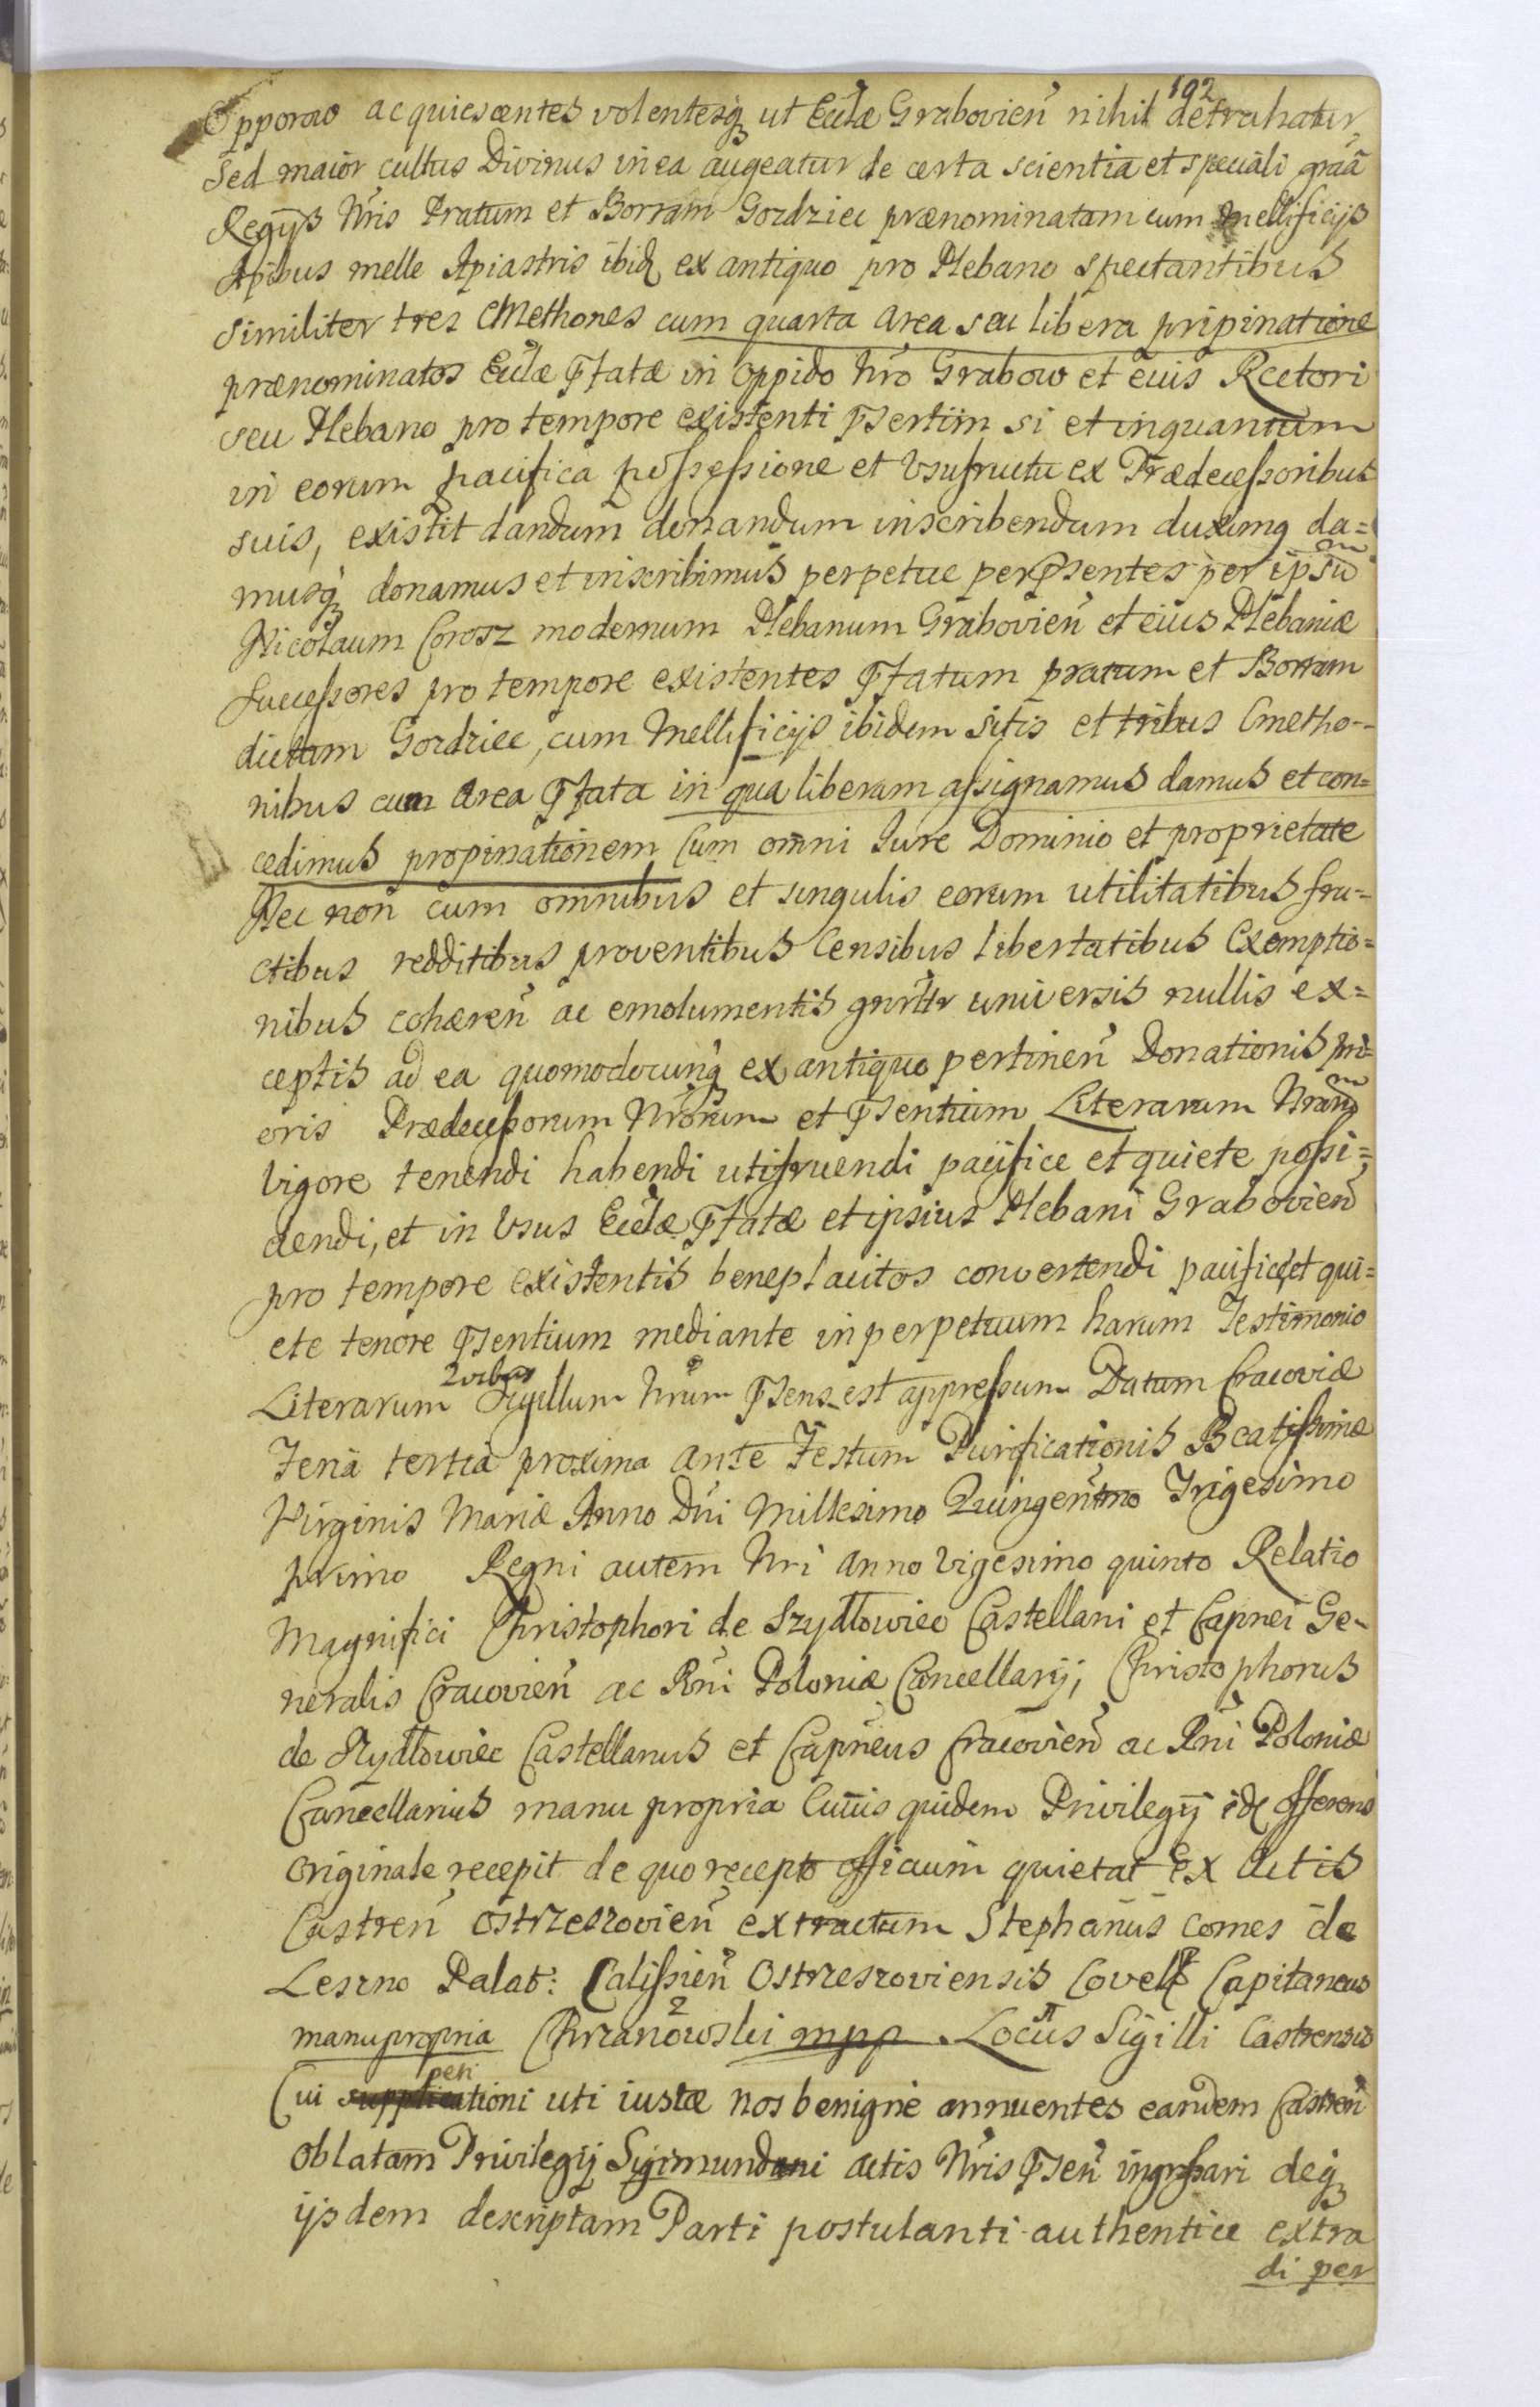 192
Opporow acquiescentes volentesq₃ ut Ecclæ Grabovieñ nihil detrahatur
sed maior cultus Divinus in ea augeatur de certa scientia et speciali grãã
Regijs Nris Pratum et Borram Gordziec prænominatam cum Mellificijs
Apibus melle Apiastris ibid ex antiquo pro Plebano spectantibus
similiter tres Cmethones cum quarta area seu libera pripinatione
prænominatos Ecclæ Pfatæ in Oppido Nro Grabow et eius Rectori
seu Plebano pro tempore existenti Psertim si et inquantum
in eorum pacifica possessione et Usufructu ex Prædecessoribus
suis, existit dandum donandum inscribendum duximq da=
musq₃ donamus et inscribimus perpetue per Psentes per ipsũ
Nicolaum Corosz modernum Plebanum Grabovieñ et eius Plebaniæ
Successores pro tempore existentes Pfatum pratum et Borram
dictam Gordziec, cum Mellificijs ibidem sitis et tribus Cmetho=
nibus cum area Pfata in qua liberam assignamus damus et con=
cedimus propinationem Cum omni Iure Dominio et proprietate
Nec non cum omnibus et singulis eorum utilitatibus fru=
ctibus redditibus proventibus Censibus libertatibus Exemptio=
nibus cohæreñ ac emolumentis gnrltr universis nullis ex=
ceptis ad ea quomodocunq₃ ex antiquo pertineñ Donationis pri=
oris Prædecessorum Nrorum et Psentium Literarum Nrarũ
vigore tenendi habendi utifruendi pacifice et quiete possi=
dendi, et in Usus Ecclæ Pfatæ et ipsius Plebani Grabovieñ
pro tempore existentis beneplacitos convertendi pacifice et qui=
ete tenore Psentium mediante in perpetuum harum Testimonio
Literarum Quibus Sigillum Nrum Psens est appressum Datum Cracoviæ
Feria tertia proxima ante Festum Purificationis Beatissimæ
Virginis Mariæ Anno Dni Millesimo Quingentmo Trigesimo
primo Regni autem Nri anno vigesimo quinto Relatio
Magnifici Christophori de Szydłowiec Castellani et Capnei Ge-
neralis Cracovieñ ac Rni Poloniæ Cancellarij, Christophorus
de Szydłowiec Castellanus et Capneus Cracovieñ ac Rni Poloniæ
Cancellarius manu propria Cuius quidem Privilegij id offerens
originale recepit de quo recepto officium quietat Ex Actis
Castreñ Ostrzeszovieñ extractum Stephanus Comes de
Leszno Palat: Calissieñ Ostrzeszoviensis Covell Capitaneus
manu propria Chrzanowski mpp Locus Sigilli Castrensis
Cui peti supplicationi uti iustæ nos benigne annuentes eandem Castreñ
oblatam Privilegij Sigismundani actis Nris Pseñ ingrssari deq₃
ijsdem descriptam Parti postulanti authentice extra
di per